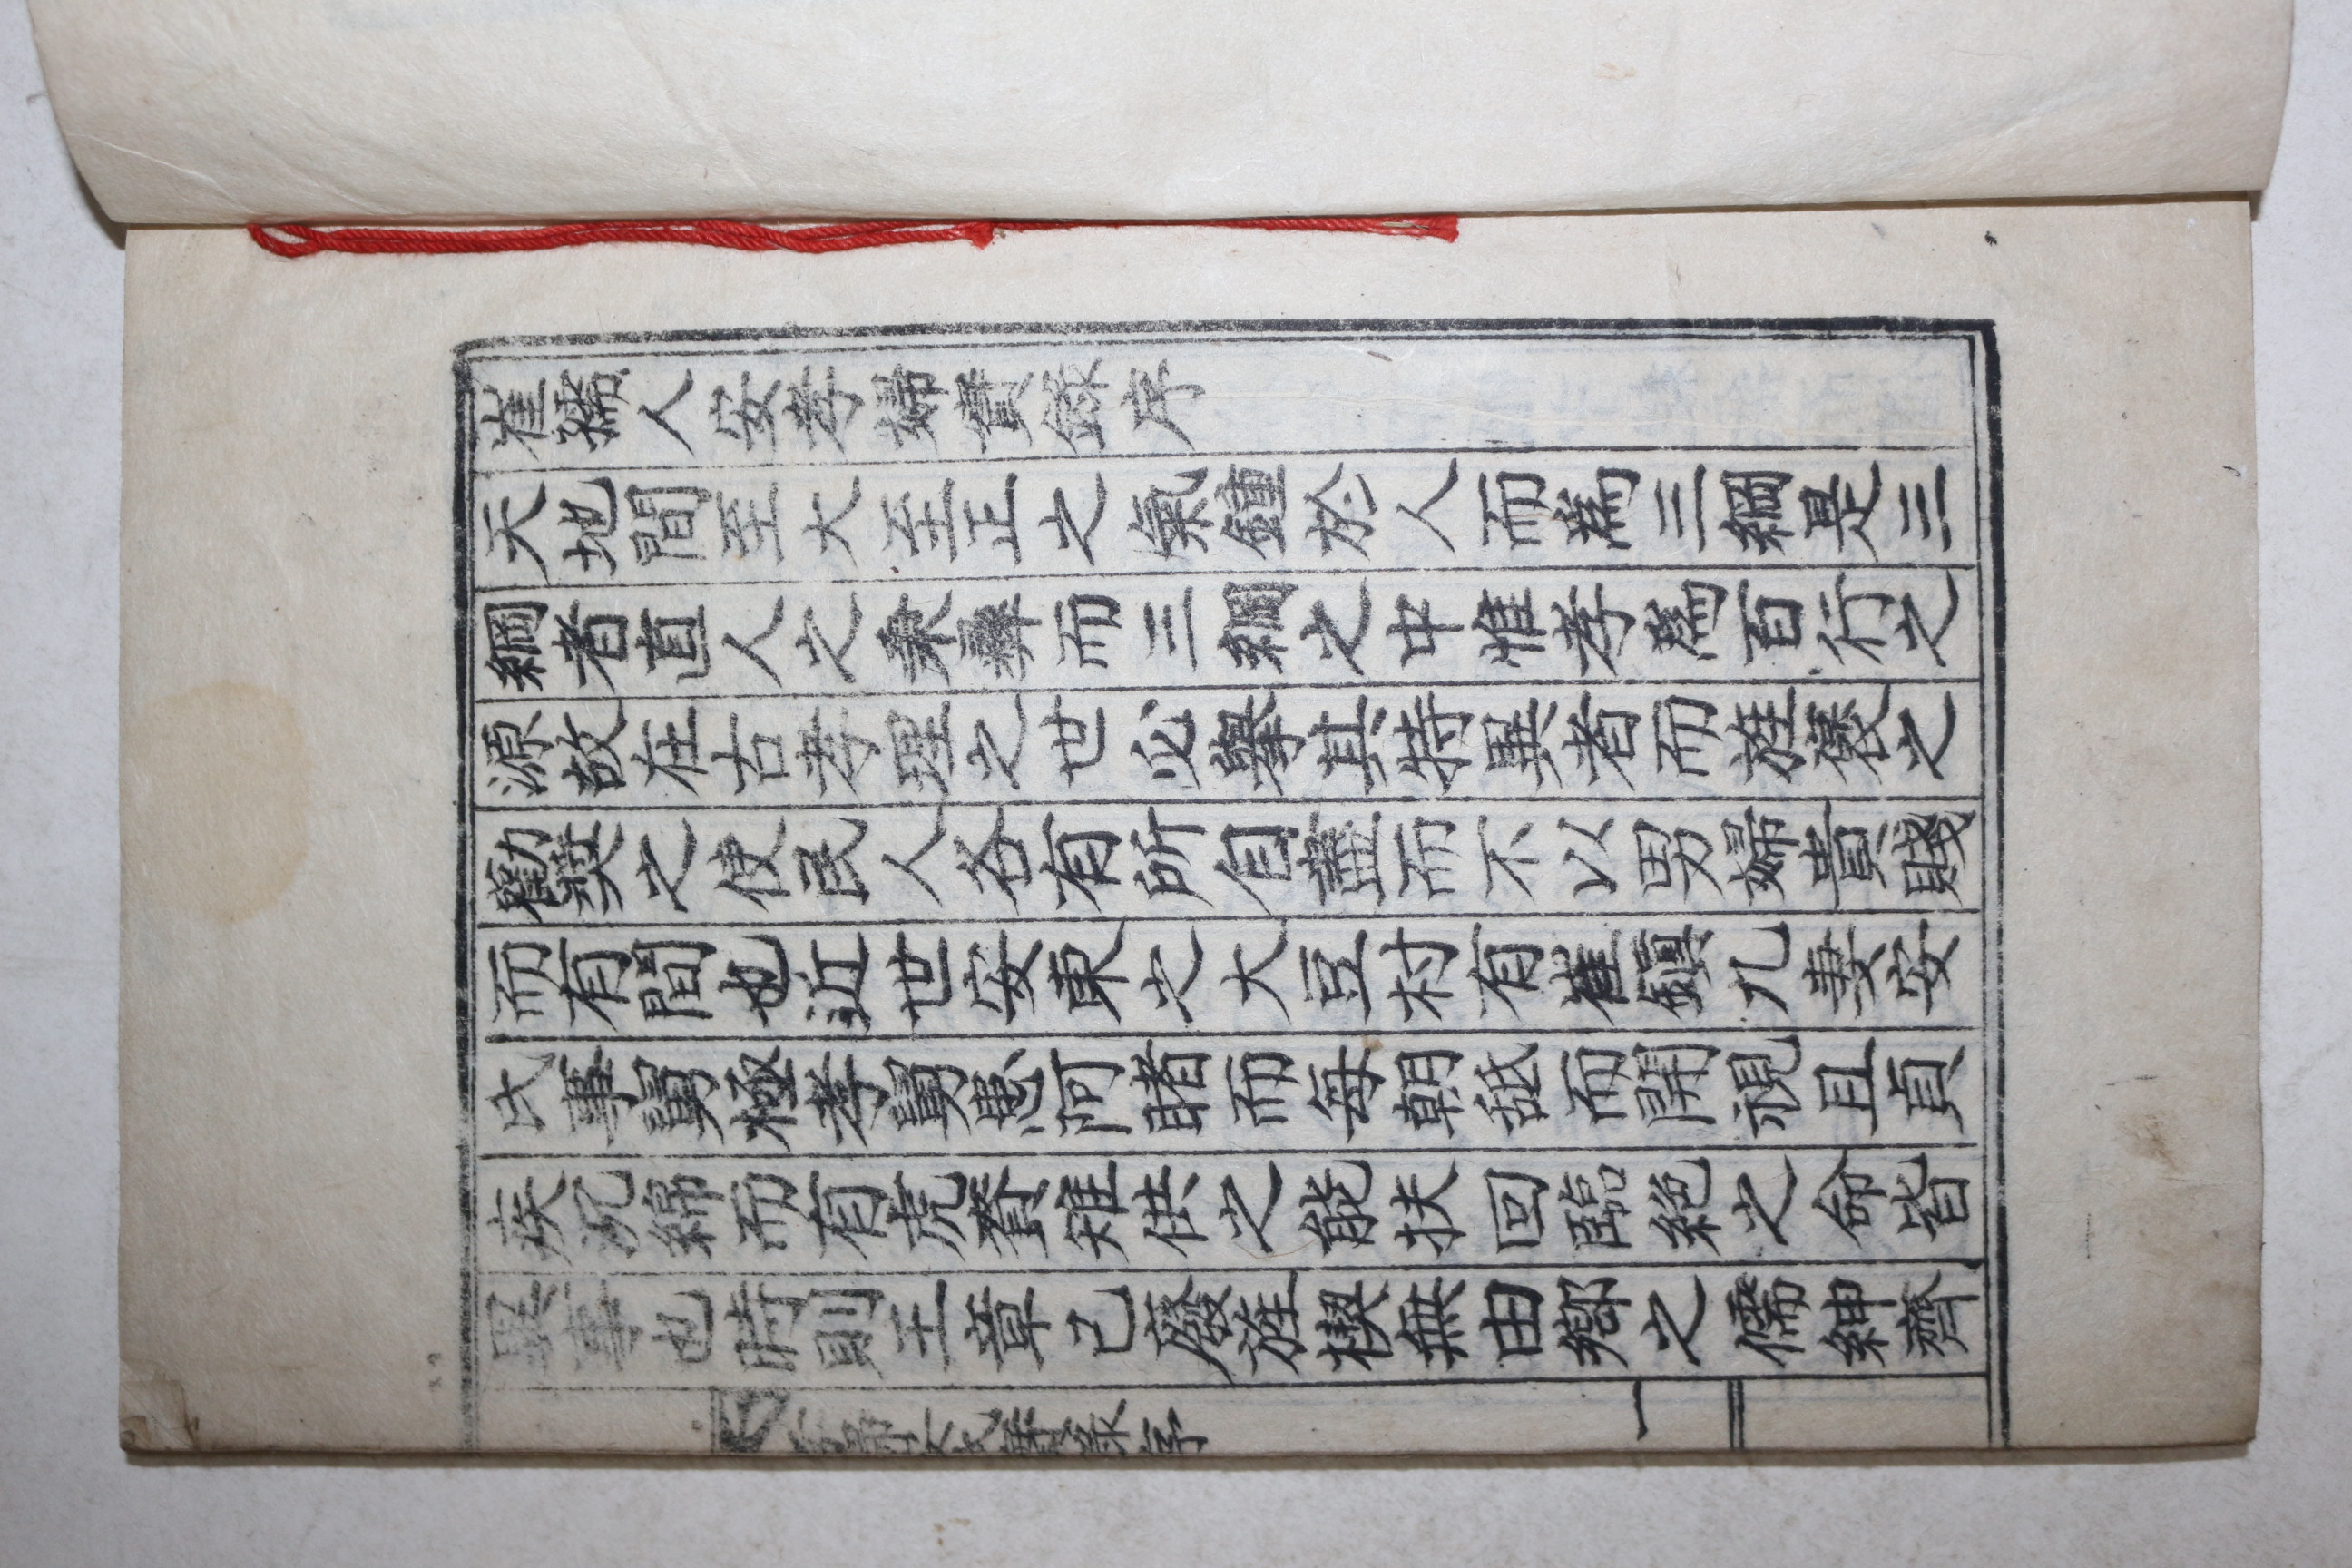 崔孺人安孝婦實錄序
天地間至大至正之氣鍾於人而爲三綱是三
綱者直人之秉彝而三綱之中惟孝爲百行之
源故在古孝理之世必擧其特異者而旌褒之
勸奬之使民人各有所自盡而不以男婦貴賤
而有間也近世安東之大豆村有崔鎭九妻安
氏事舅極孝舅患阿睹而每朝舐而開視且貞
疾沉綿而有虎賚雉供之能扶回臨絶之命皆
異事也時則王章已廢旌楔無由鄕之儒紳齊
實錄序 一